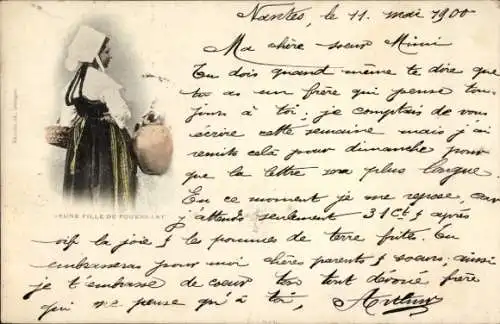 Nantes, le 11. mai 1900
Ma chère soeur Mimi
Tu dois quand même te dire que
tu as un frère qui pense tou-
jours à toi; je comptais de vous
écrire cette semaine mais j'ai
remits celà pour dimanche pour
que la lettre sera plus longue.
En ce moment je me repose, car
j'attends seulement 31 Ct & après
vif la joie & les pommes de terre frites. Tu
embrasseras pour moi chères parents & soeurs, aussi
je t'embrasse de coeur ton tout dévoué frère
qui ne pense qu'à toi, Arthur
JEUNE FILLE DE FOUESNANT